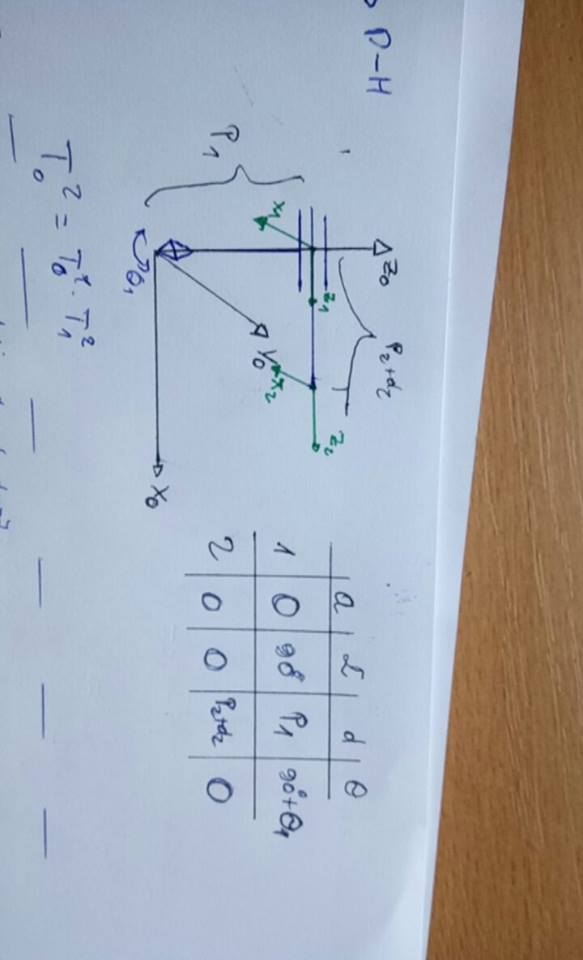 D-H
Z₀
P₂+d₂
Z₁
Z₂
X₁
X₂
Y₀
P₁
X₀
θ₁
a α d θ
1 0 90° P₁ 90°+θ₁
2 0 0 P₂+d₂ 0
T₀² = T₀¹ · T₁²